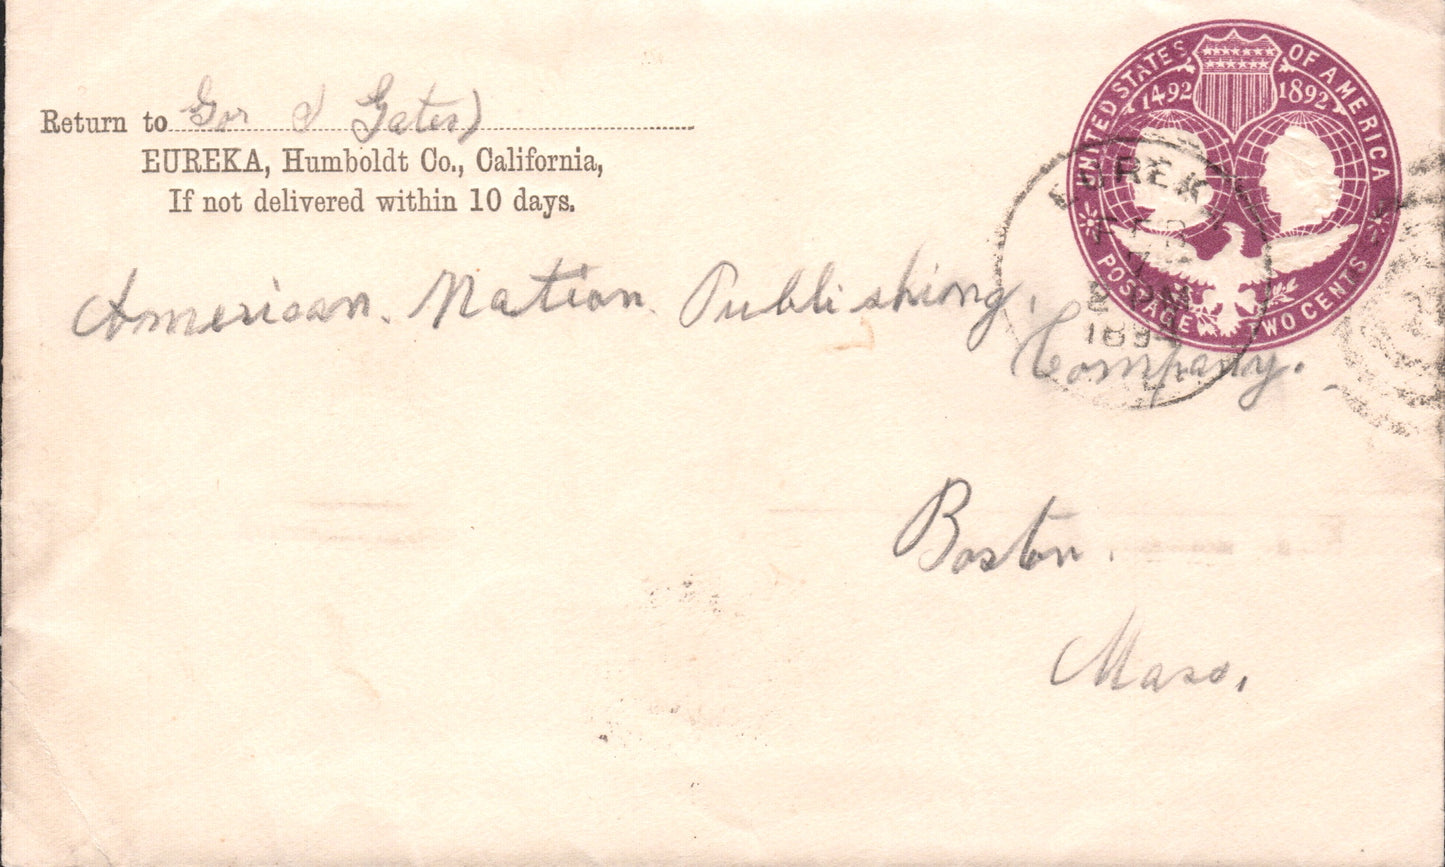 Return to Gates
EUREKA, Humboldt Co., California,
If not delivered within 10 days.
UNITED STATES OF AMERICA
1492 1892
POSTAGE TWO CENTS
EUREK
FEB
PM
189
American. Nation Publishing.
Company.
Boston.
Mass.